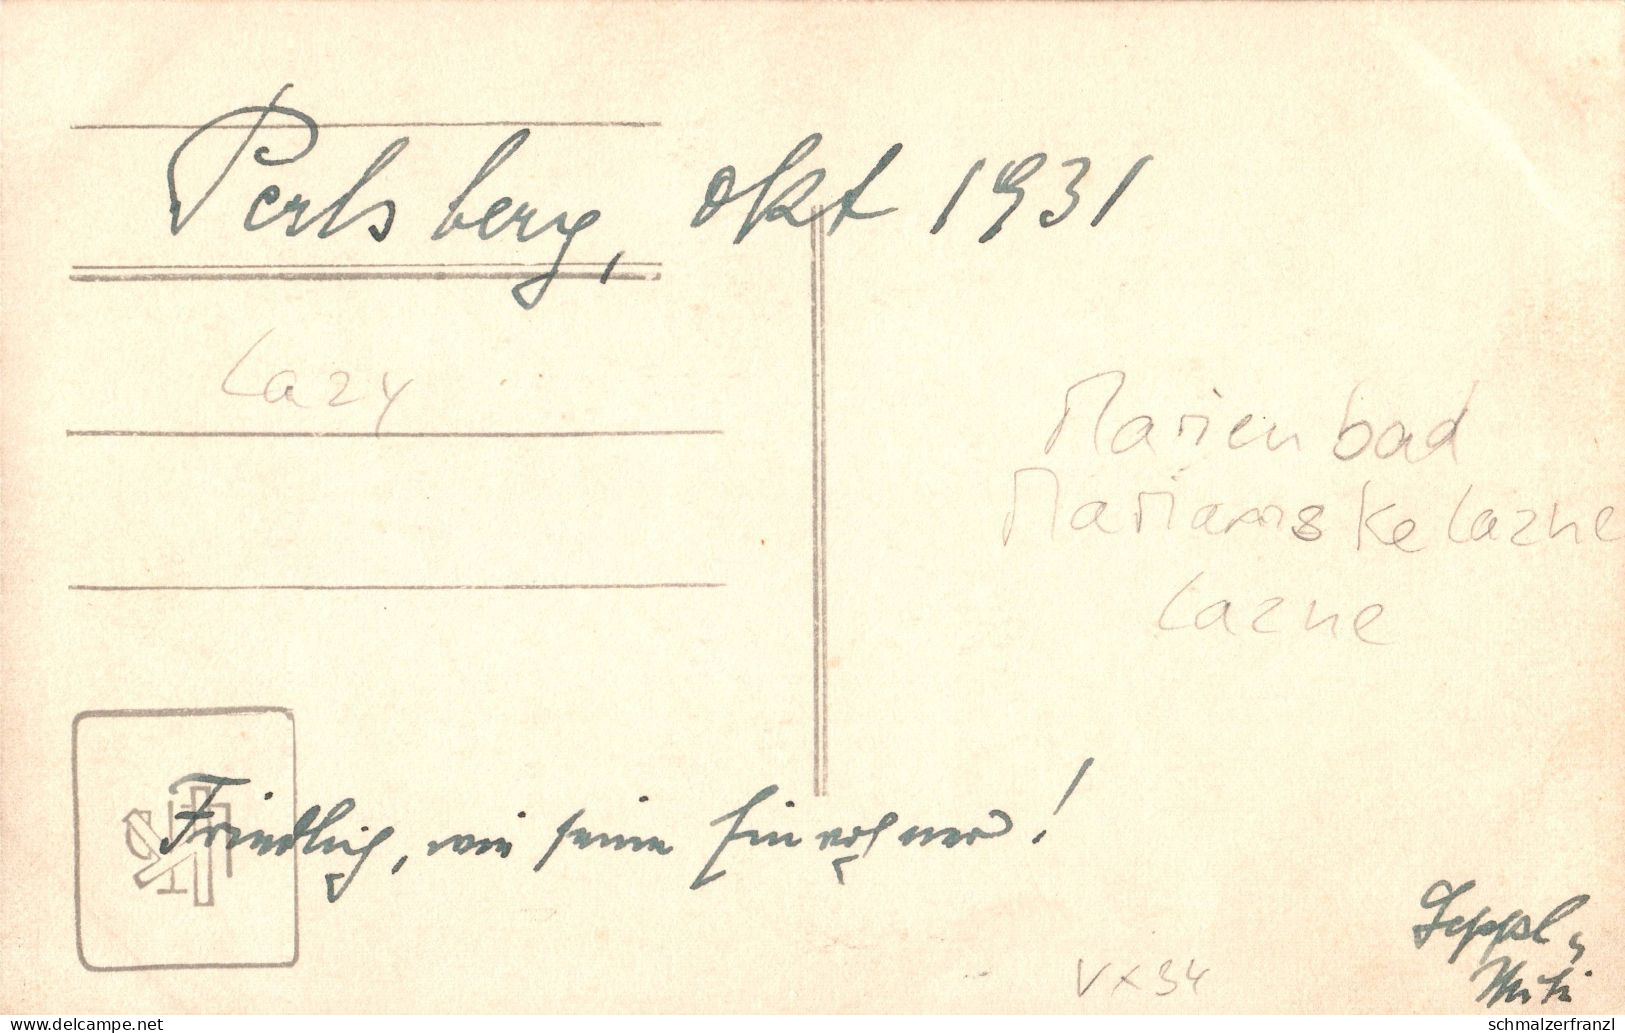 Perlsberg, Okt 1931
Lazy
Marienbad
Marianske Lazne
Lazne
Friedlich, wie seine Einwohner!
Seppl,
V x 34
delcampe.net
schmalzerfranzl